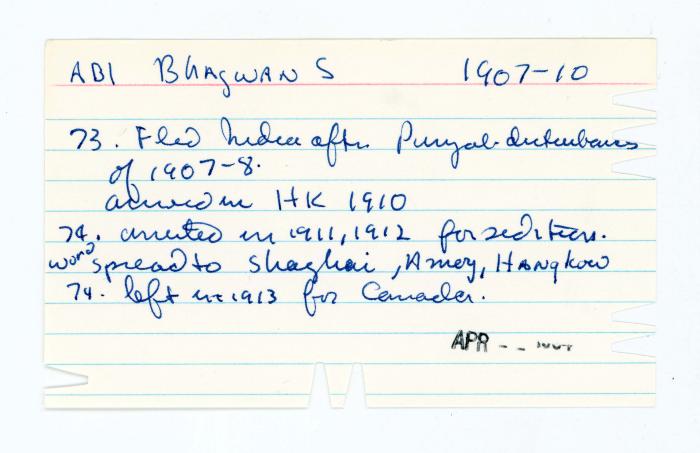 ABI BHAGWAN S 1907-10
73. Fled India after Punjab disturbances
of 1907-8.
arrived in HK 1910
74. arrested in 1911, 1912 for sedition.
word spread to Shaghai, Amoy, Hangkow
74. left in 1913 for Canada.
APR